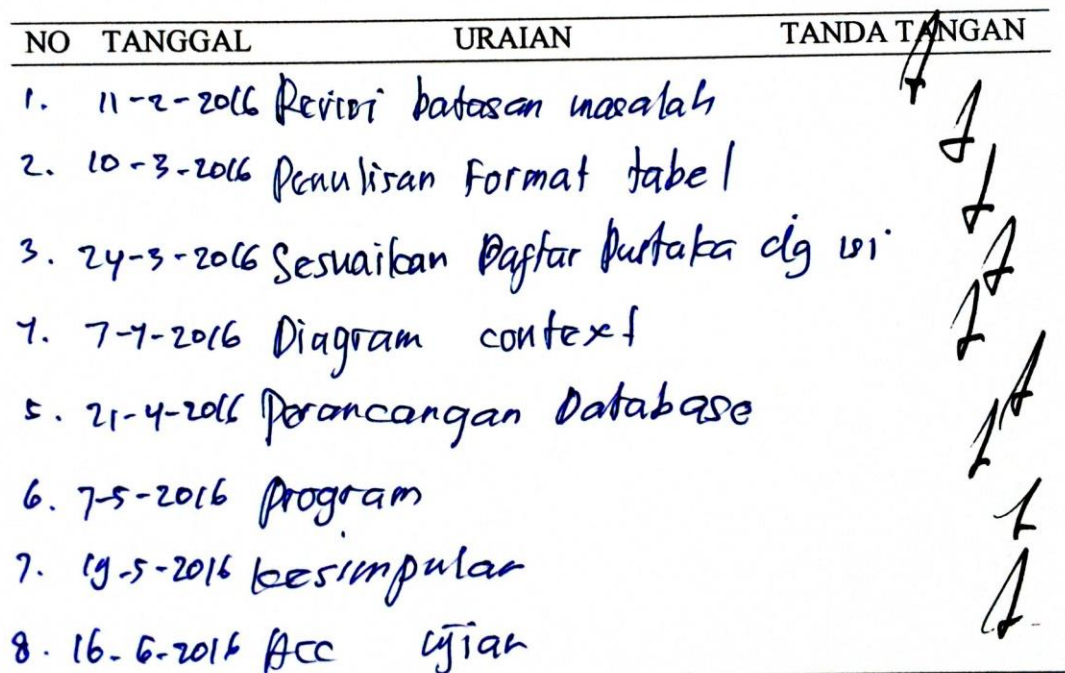 NO TANGGAL URAIAN TANDA TANGAN
1. 11-2-2016 Revisi batasan masalah
2. 10-3-2016 Penulisan Format tabel
3. 24-3-2016 Sesuaikan Daftar Pustaka dg isi
4. 7-4-2016 Diagram context
5. 21-4-2016 Perancangan Database
6. 7-5-2016 Program
7. 19-5-2016 kesimpulan
8. 16-6-2016 Acc ujian